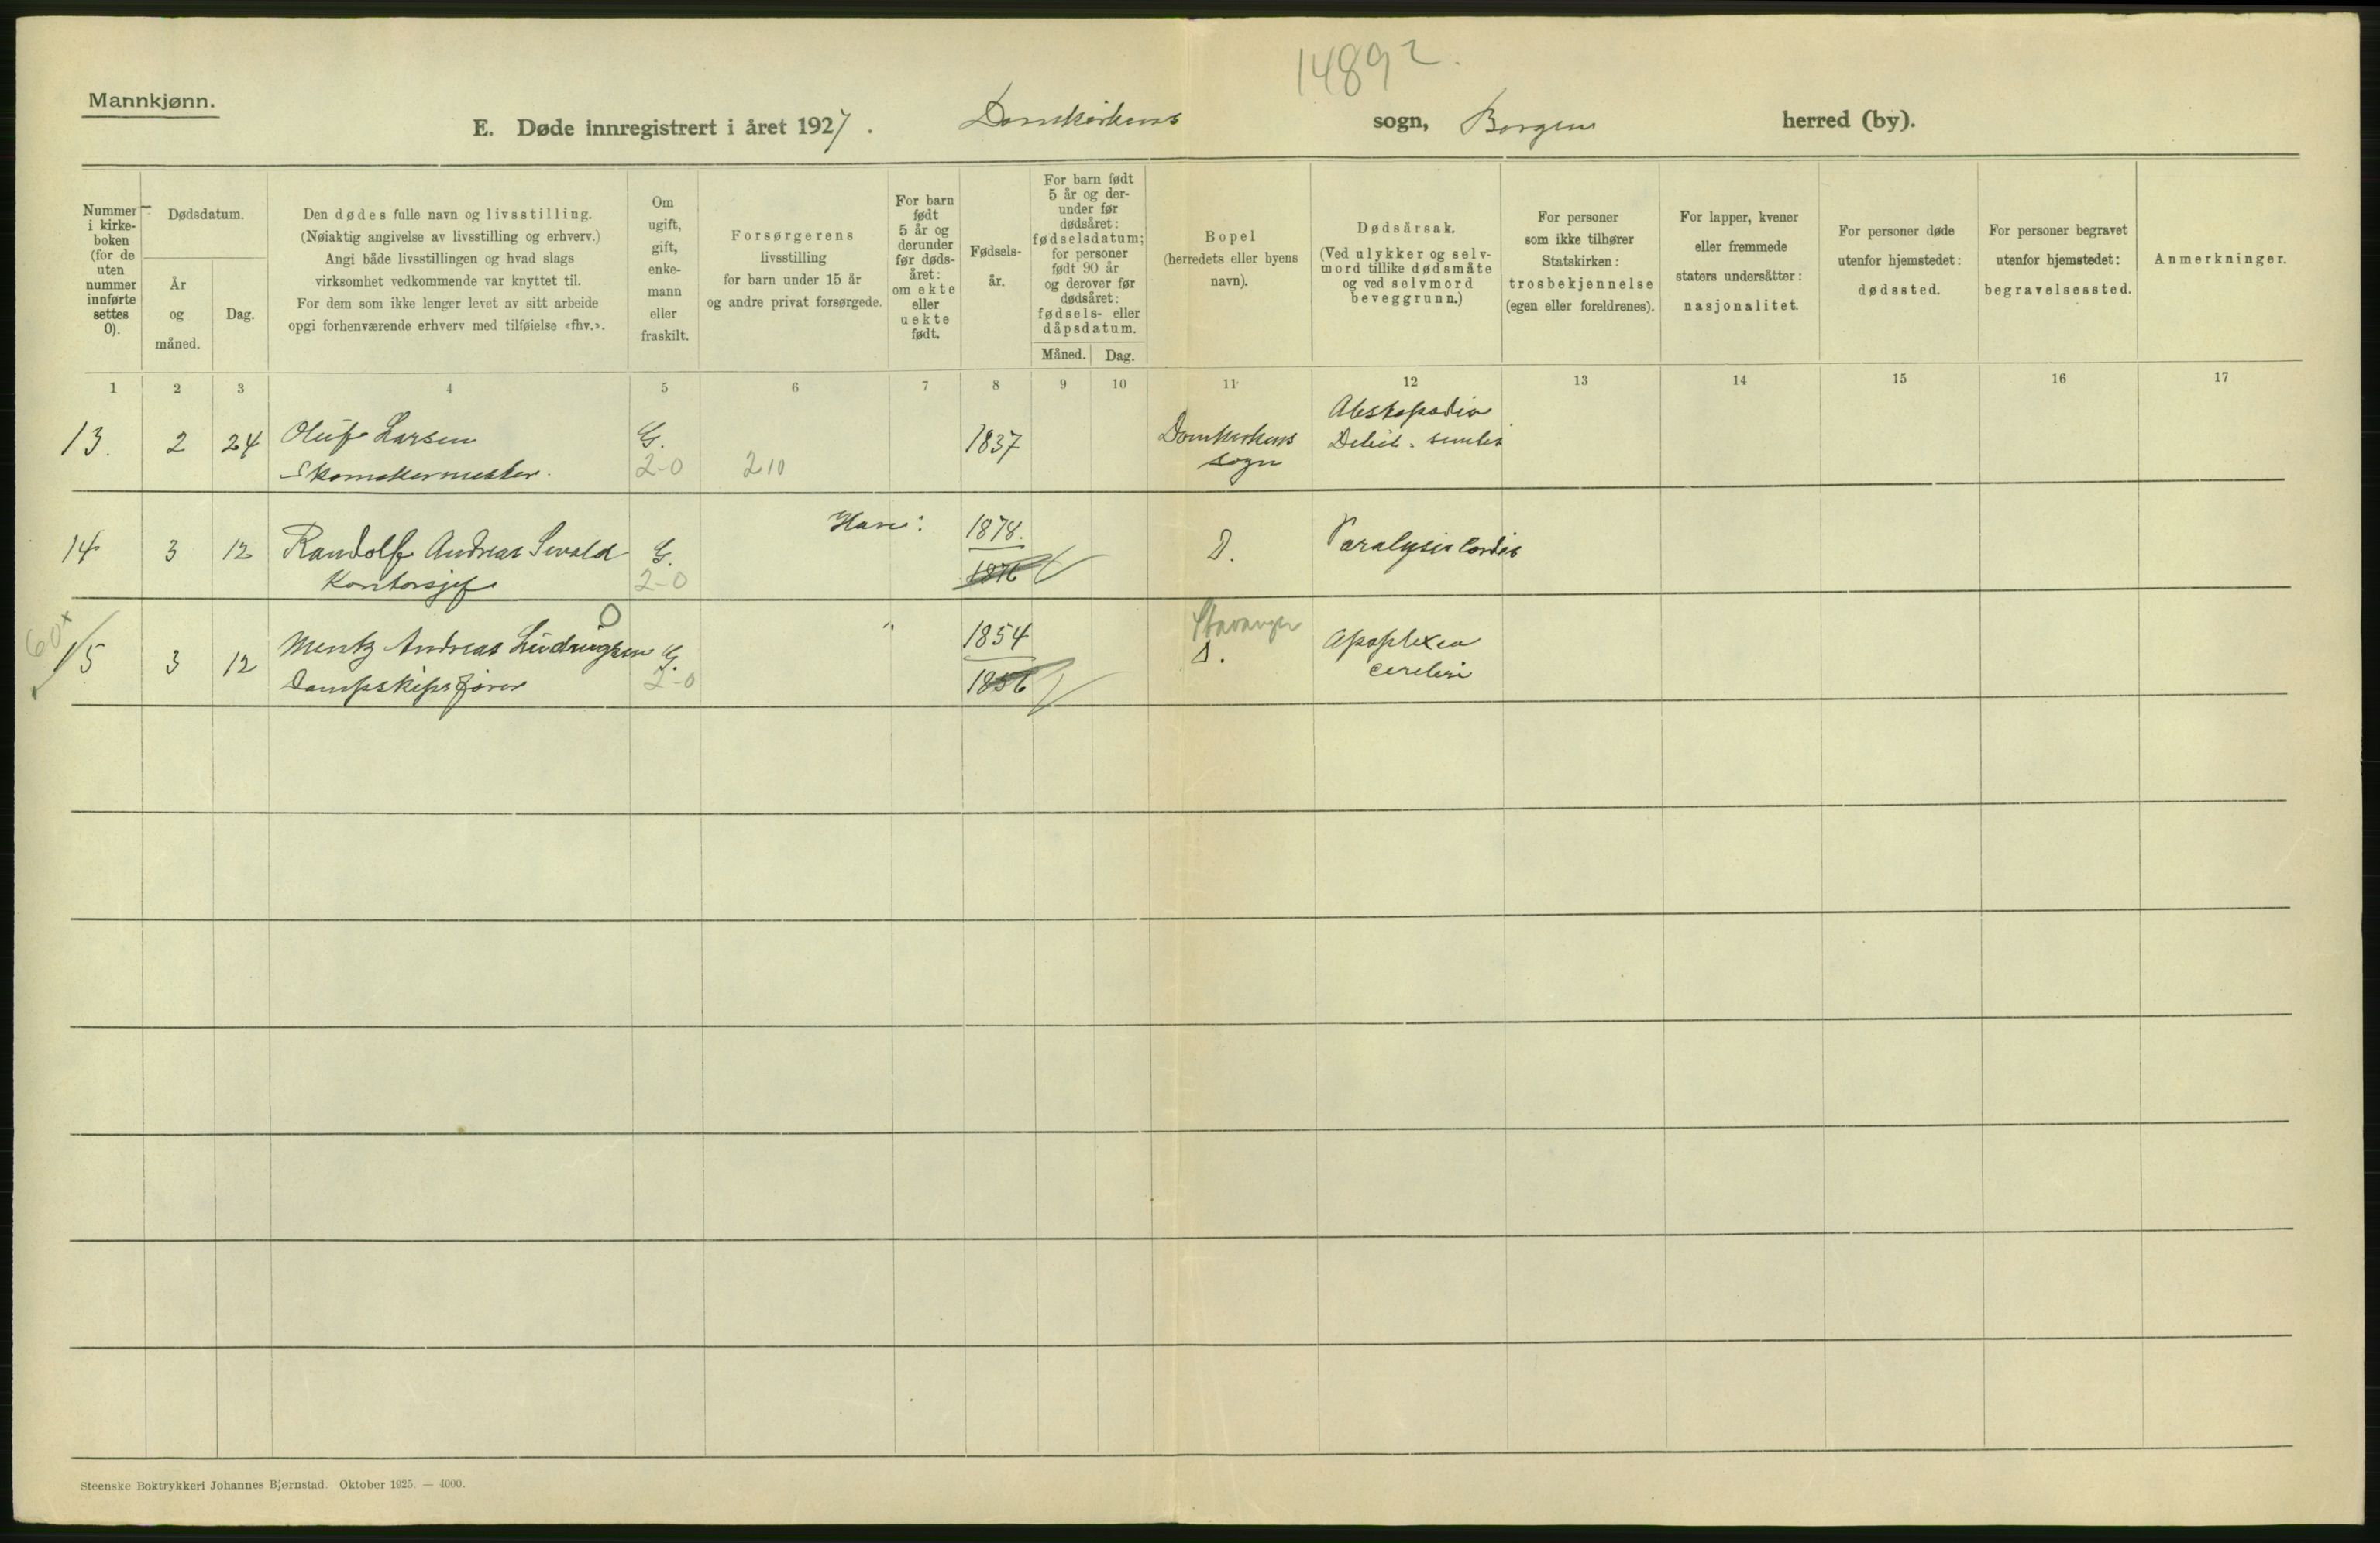 14892.
Mannkjønn.
E. Døde innregistrert i året 1927. Domkirkens sogn, Bergen herred (by).
Nummer i kirkeboken (for de uten nummer innførte settes 0).
Dødsdatum.
År og måned.
Dag.
Den dødes fulle navn og livsstilling.
(Nøiaktig angivelse av livsstilling og erhverv.)
Angi både livsstillingen og hvad slags
virksomhet vedkommende var knyttet til.
For dem som ikke lenger levet av sitt arbeide
opgi forhenværende erhverv med tilføielse «fhv.».
Om
ugift,
gift,
enke-
mann
eller
fraskilt.
Forsørgerens
livsstilling
for barn under 15 år
og andre privat forsørgede.
For barn
født
5 år og
derunder
før døds-
året:
om ekte
eller
uekte
født.
Fødsels-
år.
For barn født
5 år og der-
under før
dødsåret:
fødselsdatum;
for personer
født 90 år
og derover før
dødsåret:
fødsels- eller
dåpsdatum.
Måned. Dag.
Bopel
(herredets eller byens
navn).
Dødsårsak.
(Ved ulykker og selv-
mord tillike dødsmåte
og ved selvmord
beveggrunn.)
For personer
som ikke tilhører
Statskirken:
trosbekjennelse
(egen eller foreldrenes).
For lapper, kvener
eller fremmede
staters undersåtter:
nasjonalitet.
For personer døde
utenfor hjemstedet:
dødssted.
For personer begravet
utenfor hjemstedet:
begravelsessted.
Anmerkninger.
1 2 3 4 5 6 7 8 9 10 11 12 13 14 15 16 17
13. 2 24 Oluf Larsen G. 1837 Domkirkens
Skomakermester. 2-0 210 sogn
14 3 12 Randolf Andreas Sevald G. 1878. D. Paralysis cordis
Kontorsjef 2-0 1876
60+
15 3 12 Mentz Andreas Ludvigsen G. " 1854 Stavanger D. Apoplexia
Dampskipsfører 2-0 1856 cerebri
Steenske Boktrykkeri Johannes Bjørnstad. Oktober 1925. — 4000.